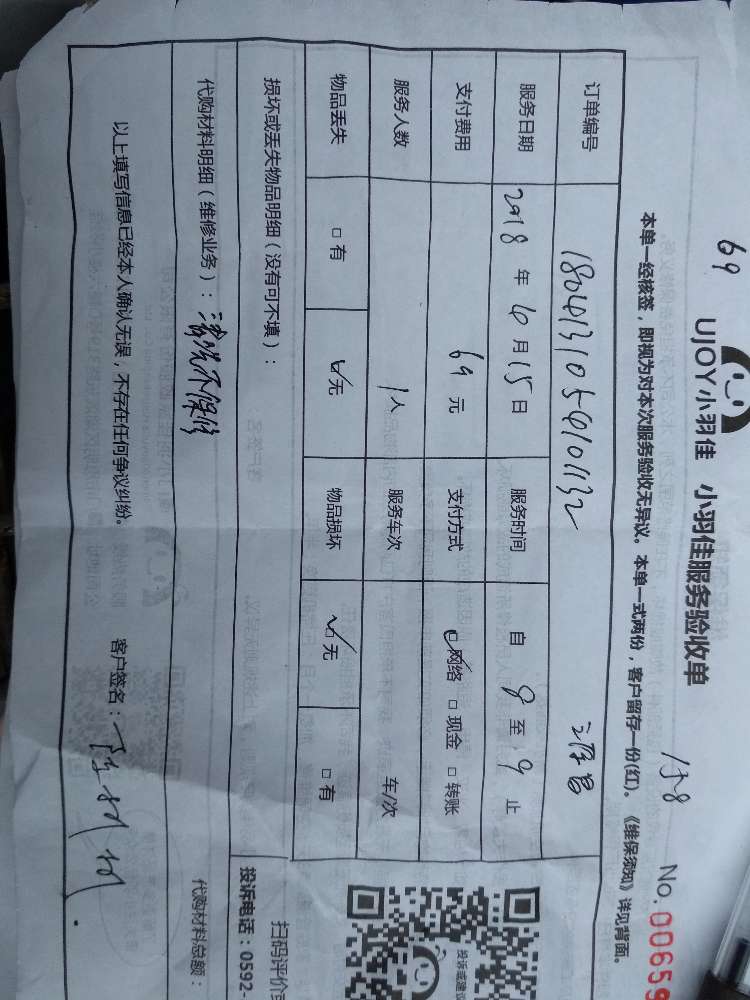 69
158
No.0065
UJOY小羽佳 小羽佳服务验收单
本单一经核签，即视为对本次服务验收无异议。本单一式两份，客户留存一份(红)。《维保须知》详见背面。
订单编号
服务日期 2018 年 6 月 15 日 服务时间 自 8 至 9 止
支付费用 69 元 支付方式 ☑网络 □现金 □转账
服务人数 1人 服务车次 车/次
物品丢失 □有 ☑无 物品损坏 ☑无 □有
损坏或丢失物品明细（没有可不填）：
代购材料明细（维修业务）：清洗不保修
代购材料总额：
以上填写信息已经本人确认无误，不存在任何争议纠纷。
客户签名：
投诉或建议
扫码评价
投诉电话：0592-